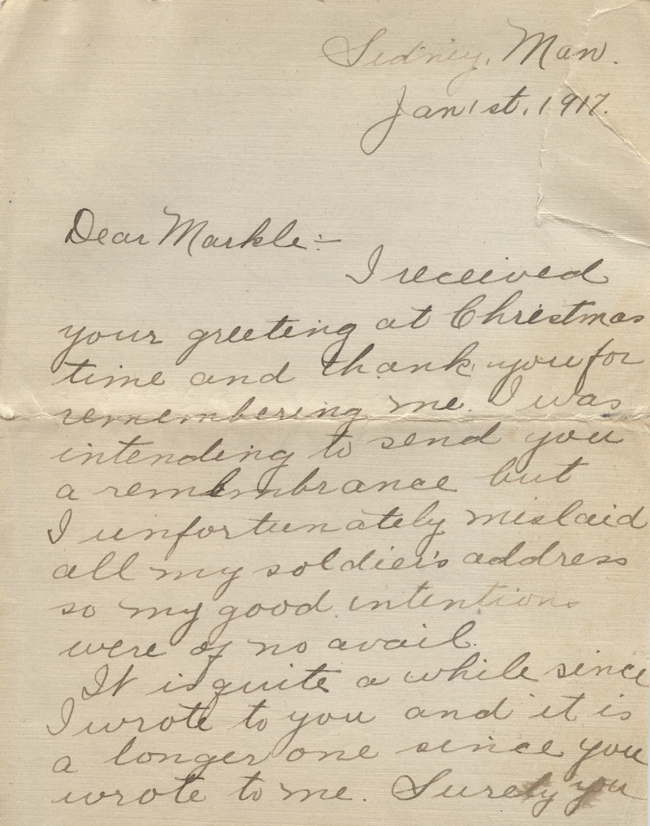 Sidney, Man.
Jan 1st, 1917.
Dear Markle:-
I received
your greeting at Christmas
time and thank you for
remembering me. I was
intending to send you
a remembrance but
I unfortunately mislaid
all my soldier's address
so my good intentions
were of no avail.
It is quite a while since
I wrote to you and it is
a longer one since you
wrote to me. Surely you